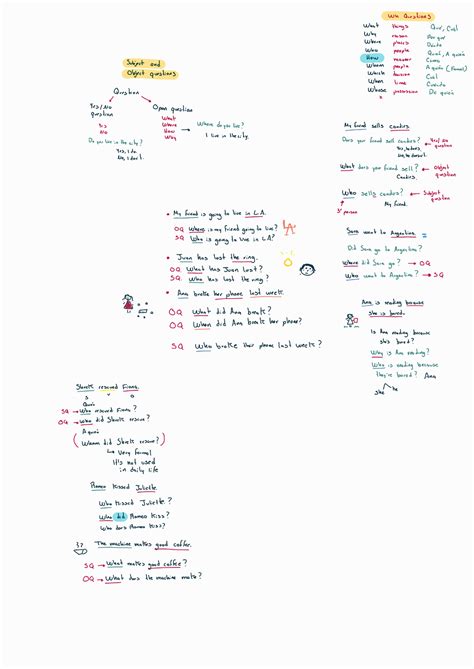 Subject and
Object questions
Question
Yes/No
question
Open question
What
Where
How
Why
Where do you live?
I live in the city.
Do you live in the city?
Yes, I do.
No, I don't.
WH Questions
What things Qué, Cual
Why reason Por qué
Where places
Who people Quién, A quién
How manner Como
Whom people A quién (Formal)
Which decision Cual
When time
Whose possession De quién
My friend sells candies
Does your friend sell candies?
Yes/No
question
What does your friend sell?
Candies.
Object
question
Who sells candies?
My friend.
Subject
question
3° person
My friend is going to live in L.A.
OQ Where is my friend going to live?
SQ Who is going to live in L.A?
LA
Juan has lost the ring.
OQ What has Juan lost?
SQ Who has lost the ring?
Ana broke her phone last week.
OQ What did Ana break?
OQ When did Ana break her phone?
SQ Who broke her phone last week?
Sara went to Argentina.
Did Sara go to Argentina?
Where did Sara go? → OQ
Who went to Argentina? → SQ
Ana is reading because
she is bored.
Is Ana reading because
she's bored?
Why is Ana reading?
Who is reading because
they're bored? Ana
she he
Shrek rescued Fiona.
S V O
Quién
SQ → Who rescued Fiona?
OQ → Who did Shrek rescue?
A quién
(Whom did Shrek rescue?)
Very formal
It's not used
in daily life
Romeo kissed Juliette.
Who kissed Juliette?
Who did Romeo kiss?
Who does Romeo kiss?
The machine makes good coffee.
SQ → What makes good coffee?
OQ → What does the machine make?